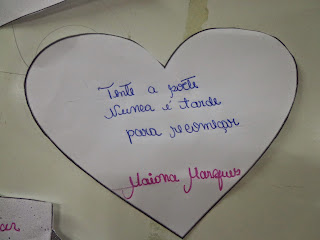 Tente a sorte
Nunca é tarde
para recomeçar
Maiona Marques